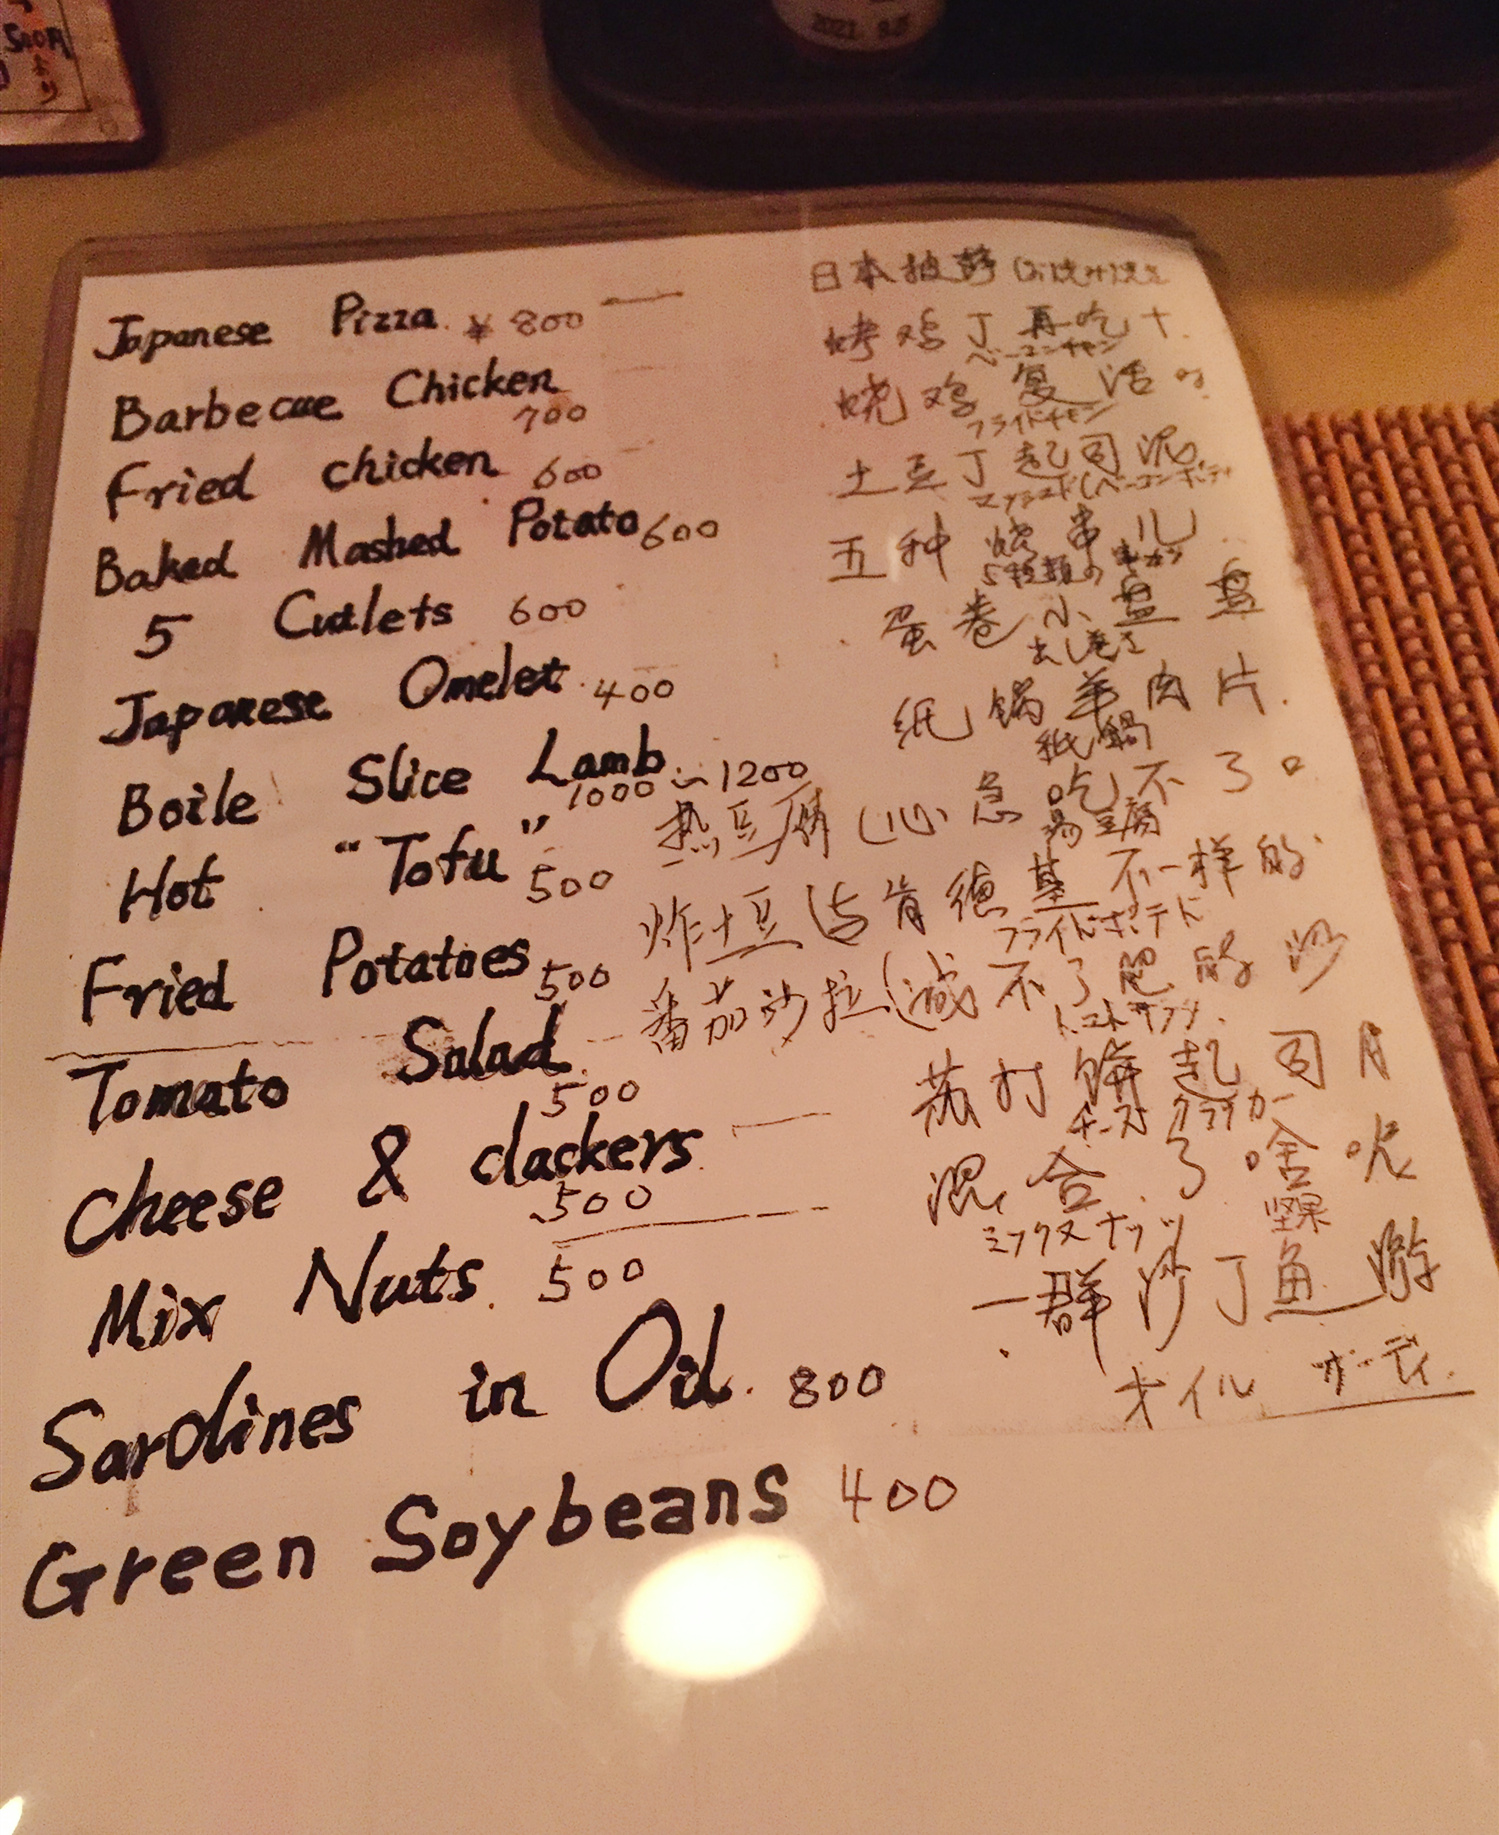 500円
より
2021.
Japanese Pizza ¥800 日本披萨
Barbecue Chicken 700 烤鸡丁 再吃
Fried chicken 600 烧鸡 复活
フライドチキン
Baked Mashed Potato 600 土豆丁 起司泥
5 Cutlets 600 五种 烧串儿
5種類の串カツ
Japanese Omelet 400 蛋卷小盘盘
出し巻き
Boile Slice Lamb 1000~1200 纸锅羊肉片
紙鍋
Hot "Tofu" 500 热豆腐(心急吃不了
湯豆腐
Fried Potatoes 500 炸土豆(与肯德基不一样的
フライドポテト
Tomato Salad 500 番茄沙拉(减不了肥的沙
トマトサラダ
cheese & clackers 500 苏打饼起司月
チーズ クラッカー
Mix Nuts 500 混合了啥呢
坚果
ミックスナッツ
Sardines in Oil 800 一群沙丁鱼游
オイル サーディ
Green Soybeans 400